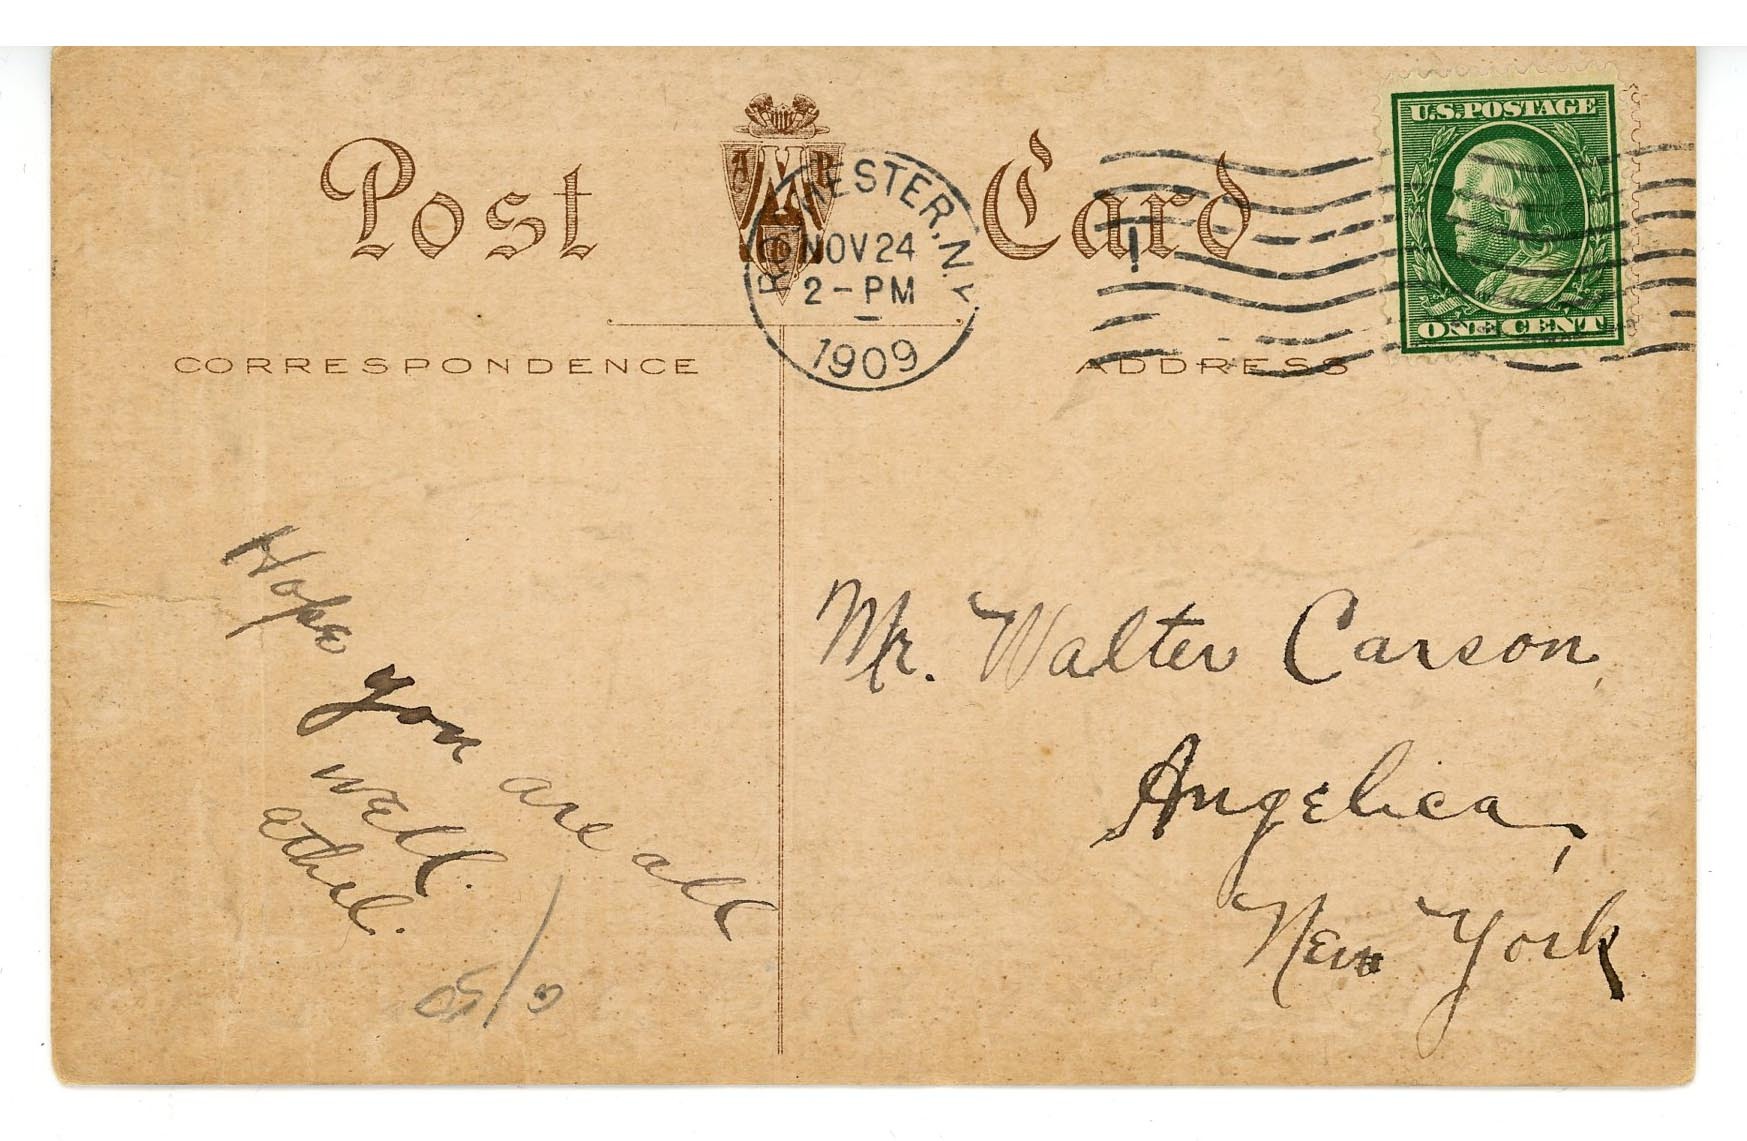 Post Card
ROCHESTER, N.Y.
NOV 24
2-PM
1909
U.S. POSTAGE
ONE CENT
CORRESPONDENCE
ADDRESS
Hope you are all
well.
Ethel.
Mr. Walter Carson,
Angelica,
New York